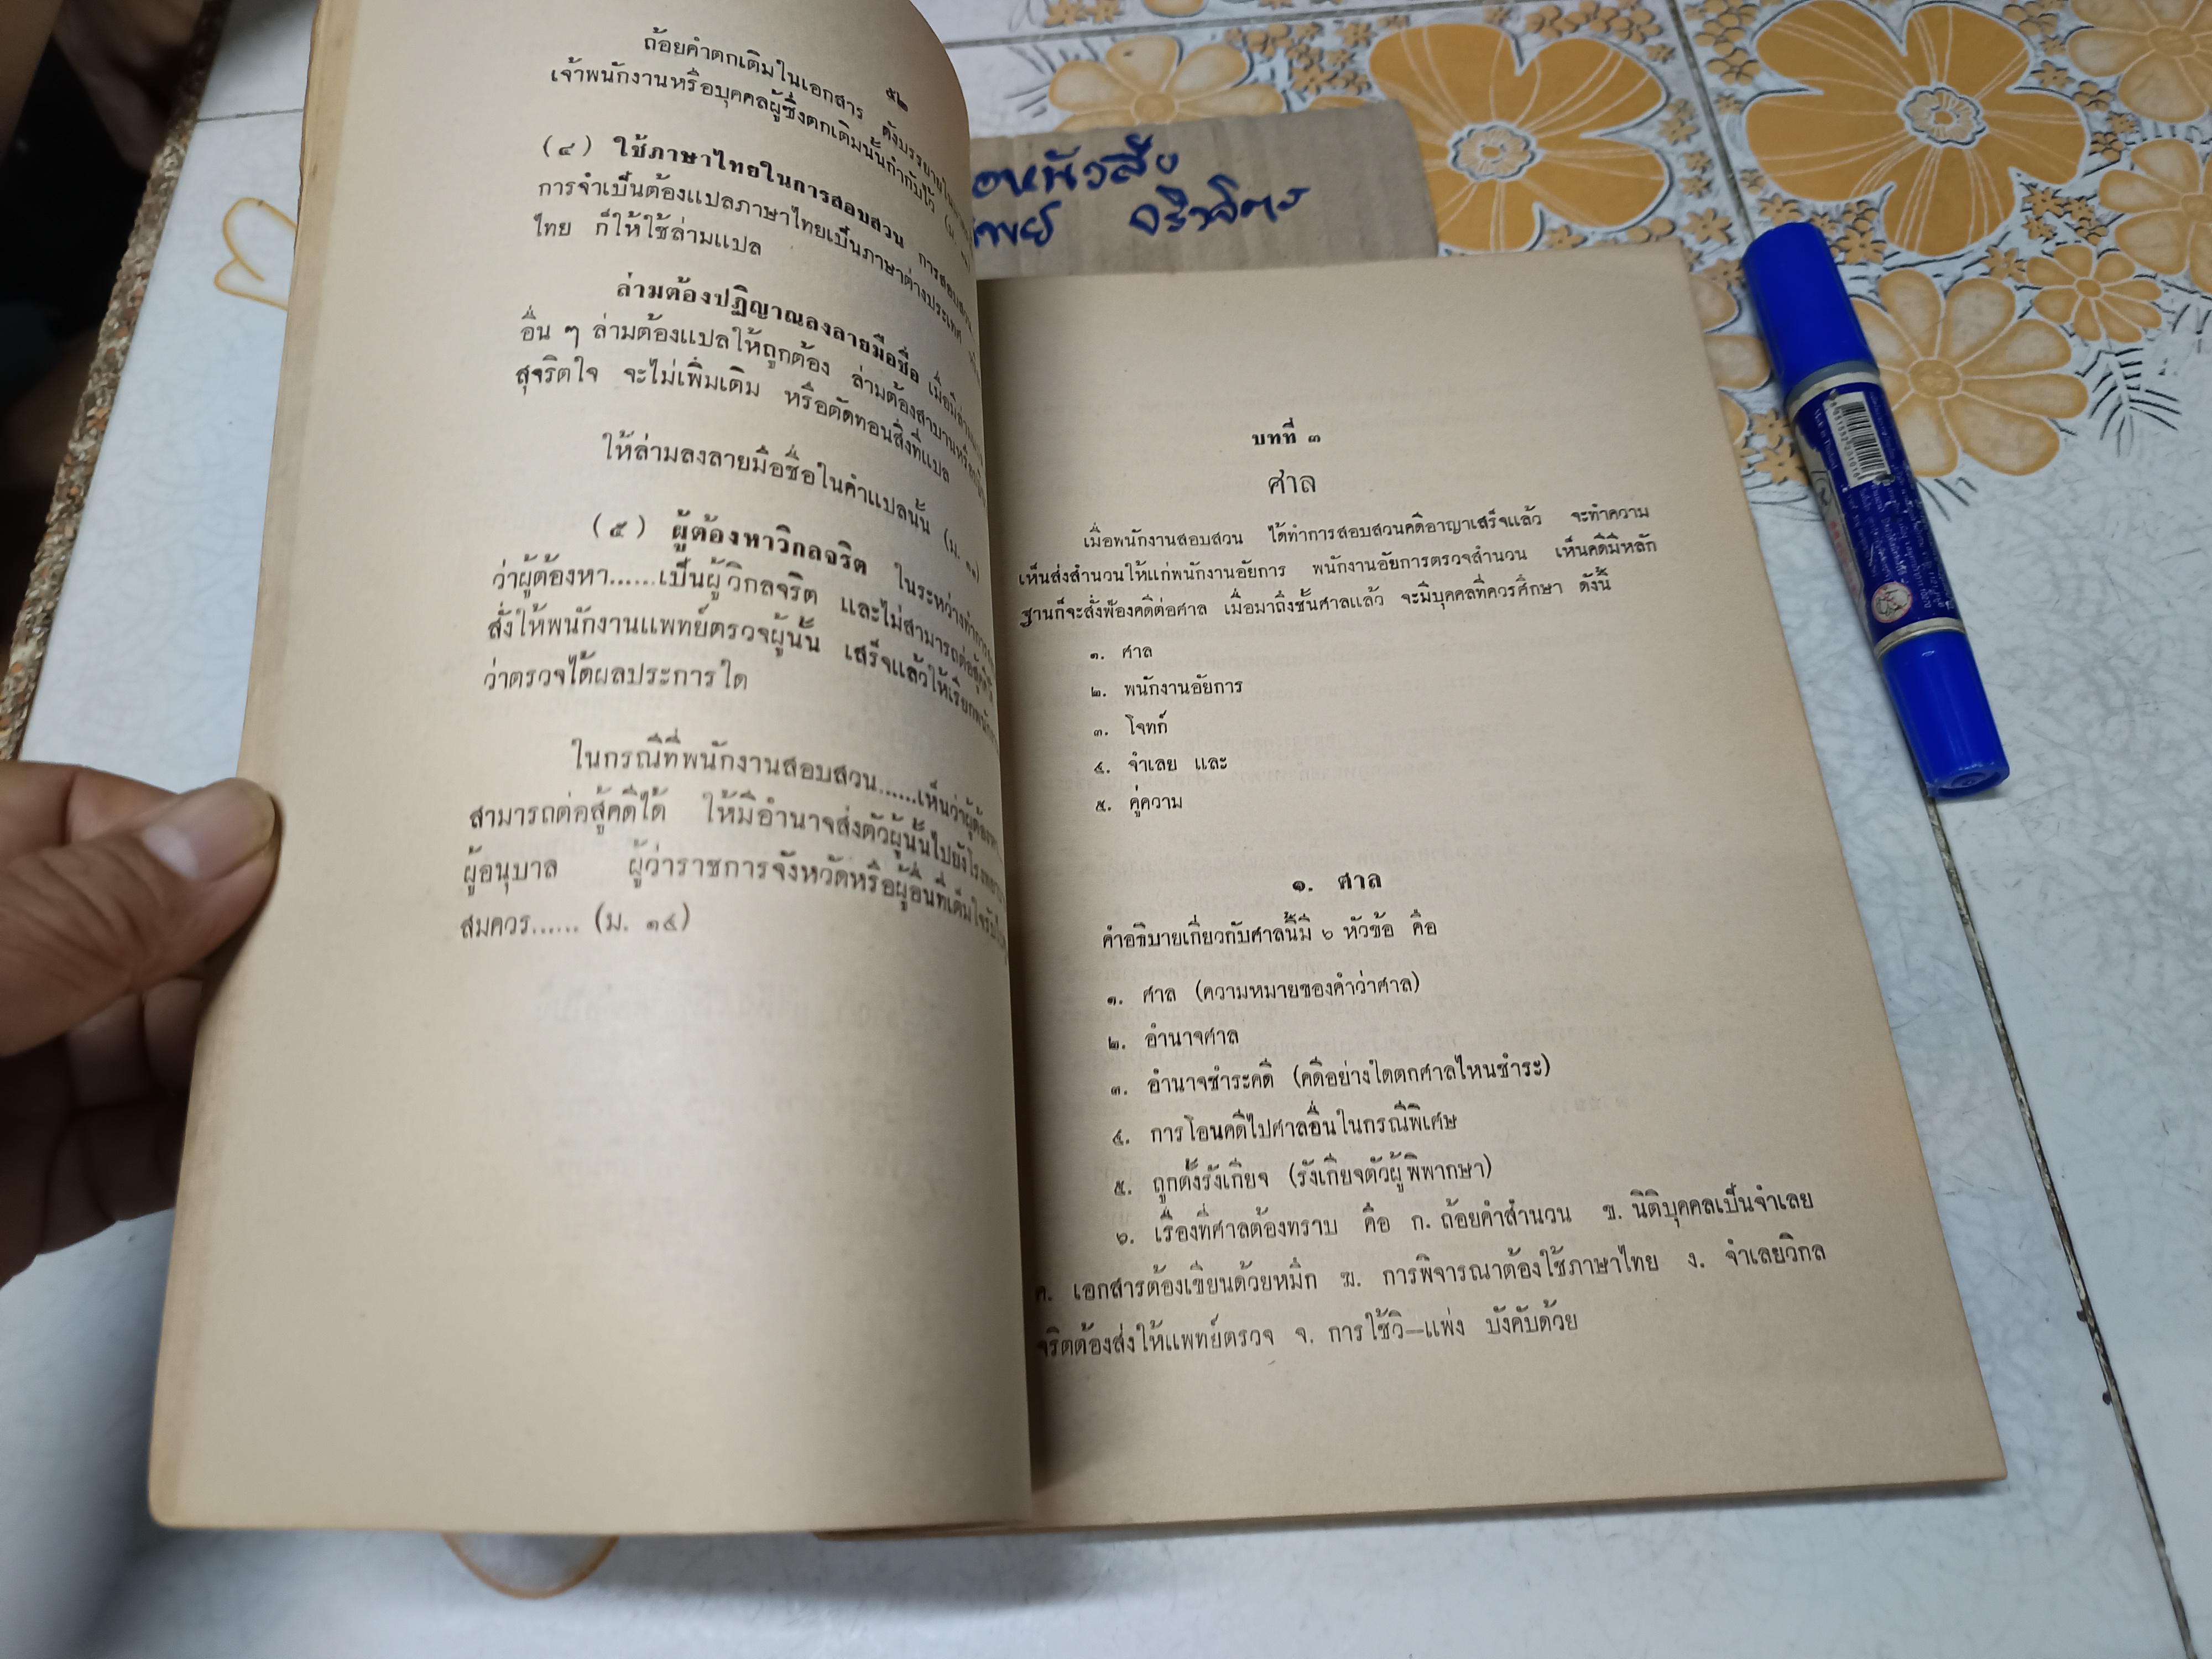 ๕๒
ถ้อยคำตกเติมในเอกสาร ดังบรรยายใน
เจ้าพนักงานหรือบุคคลผู้ซึ่งตกเติมนั้นกำกับไว้ (ม.
(๔) ใช้ภาษาไทยในการสอบสวน การสอบสวน
การจำเป็นต้องแปลภาษาไทยเป็นภาษาต่างประเทศ
ไทย ก็ให้ใช้ล่ามแปล
ล่ามต้องปฏิญาณลงลายมือชื่อ เมื่อมีล่าม
อื่น ๆ ล่ามต้องแปลให้ถูกต้อง ล่ามต้องสาบานหรือ
สุจริตใจ จะไม่เพิ่มเติม หรือตัดทอนสิ่งที่แปล
ให้ล่ามลงลายมือชื่อในคำแปลนั้น (ม. ๑๓)
(๕) ผู้ต้องหาวิกลจริต ในระหว่างทำการ
ว่าผู้ต้องหา......เป็นผู้วิกลจริต และไม่สามารถต่อสู้คดีได้
สั่งให้พนักงานแพทย์ตรวจผู้นั้น เสร็จแล้วให้เรียกพนักงาน
ว่าตรวจได้ผลประการใด
ในกรณีที่พนักงานสอบสวน......เห็นว่าผู้ต้องหา
สามารถต่อสู้คดีได้ ให้มีอำนาจส่งตัวผู้นั้นไปยังโรงพยาบาล
ผู้อนุบาล ผู้ว่าราชการจังหวัดหรือผู้อื่นที่เต็มใจรับ
สมควร...... (ม. ๑๔)
อหนังสือ
บทที่ ๓
ศาล
เมื่อพนักงานสอบสวน ได้ทำการสอบสวนคดีอาญาเสร็จแล้ว จะทำความ
เห็นส่งสำนวนให้แก่พนักงานอัยการ พนักงานอัยการตรวจสำนวน เห็นคดีมีหลัก
ฐานก็จะสั่งฟ้องคดีต่อศาล เมื่อมาถึงชั้นศาลแล้ว จะมีบุคคลที่ควรศึกษา ดังนี้
๑. ศาล
๒. พนักงานอัยการ
๓. โจทก์
๔. จำเลย และ
๕. คู่ความ
๑. ศาล
คำอธิบายเกี่ยวกับศาลนี้มี ๖ หัวข้อ คือ
๑. ศาล (ความหมายของคำว่าศาล)
๒. อำนาจศาล
๓. อำนาจชำระคดี (คดีอย่างใดตกศาลไหนชำระ)
๔. การโอนคดีไปศาลอื่นในกรณีพิเศษ
๕. ถูกตั้งรังเกียจ (รังเกียจตัวผู้พิพากษา)
๖. เรื่องที่ศาลต้องทราบ คือ ก. ถ้อยคำสำนวน ข. นิติบุคคลเป็นจำเลย
ค. เอกสารต้องเขียนด้วยหมึก ฆ. การพิจารณาต้องใช้ภาษาไทย ง. จำเลยวิกล
จริตต้องส่งให้แพทย์ตรวจ จ. การใช้วิ—แพ่ง บังคับด้วย